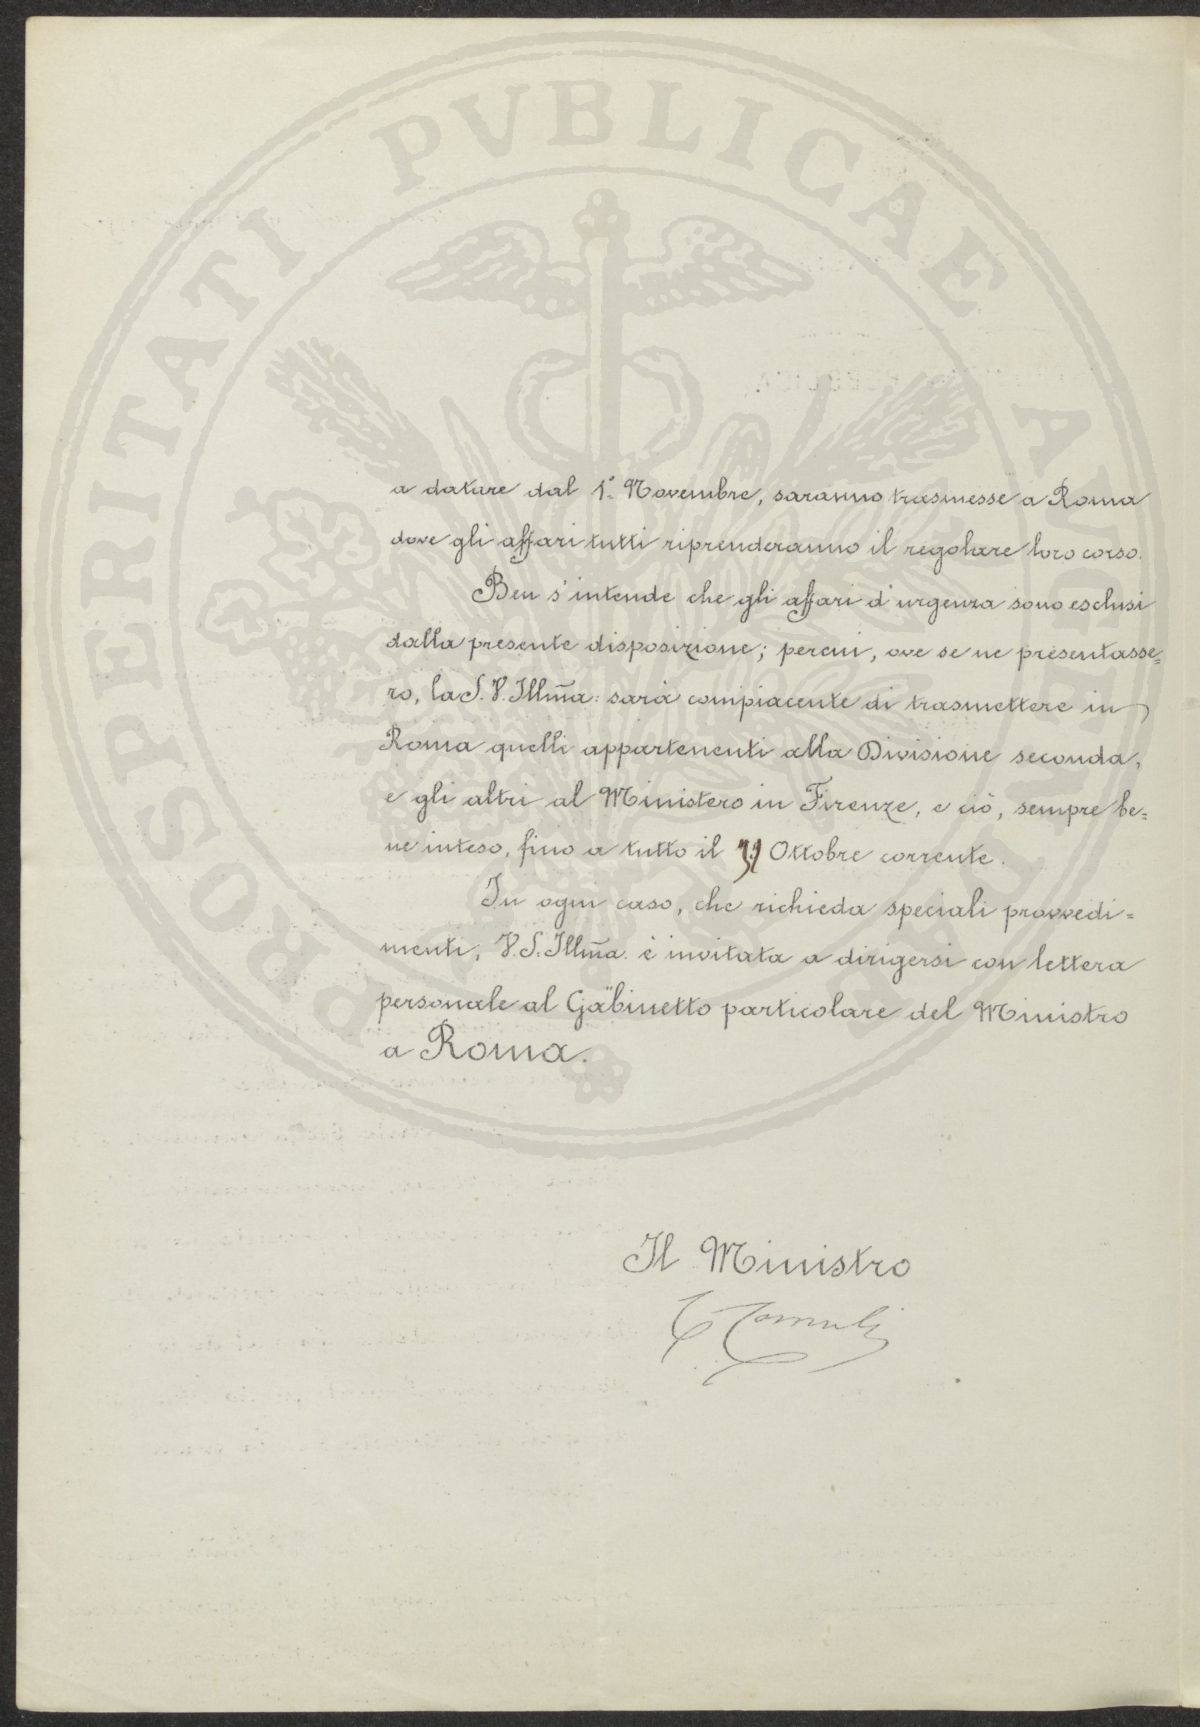 PROSPERITATI PVBLICAE AVGENDAE
a datare dal 1º Novembre, saranno trasmesse a Roma
dove gli affari tutti riprenderanno il regolare loro corso.
Ben s'intende che gli affari d'urgenza sono esclusi
dalla presente disposizione; percui, ove se ne presentasse=
ro, la S. V. Illm̃a: sarà compiacente di trasmettere in
Roma quelli appartenenti alla Divisione seconda,
e gli altri al Ministero in Firenze, e ciò, sempre be=
ne inteso, fino a tutto il Ottobre corrente.
In ogni caso, che richieda speciali provvedi=
menti, V. S. Illm̃a. è invitata a dirigersi con lettera
personale al Gabinetto particolare del Ministro
a Roma.
Il Ministro